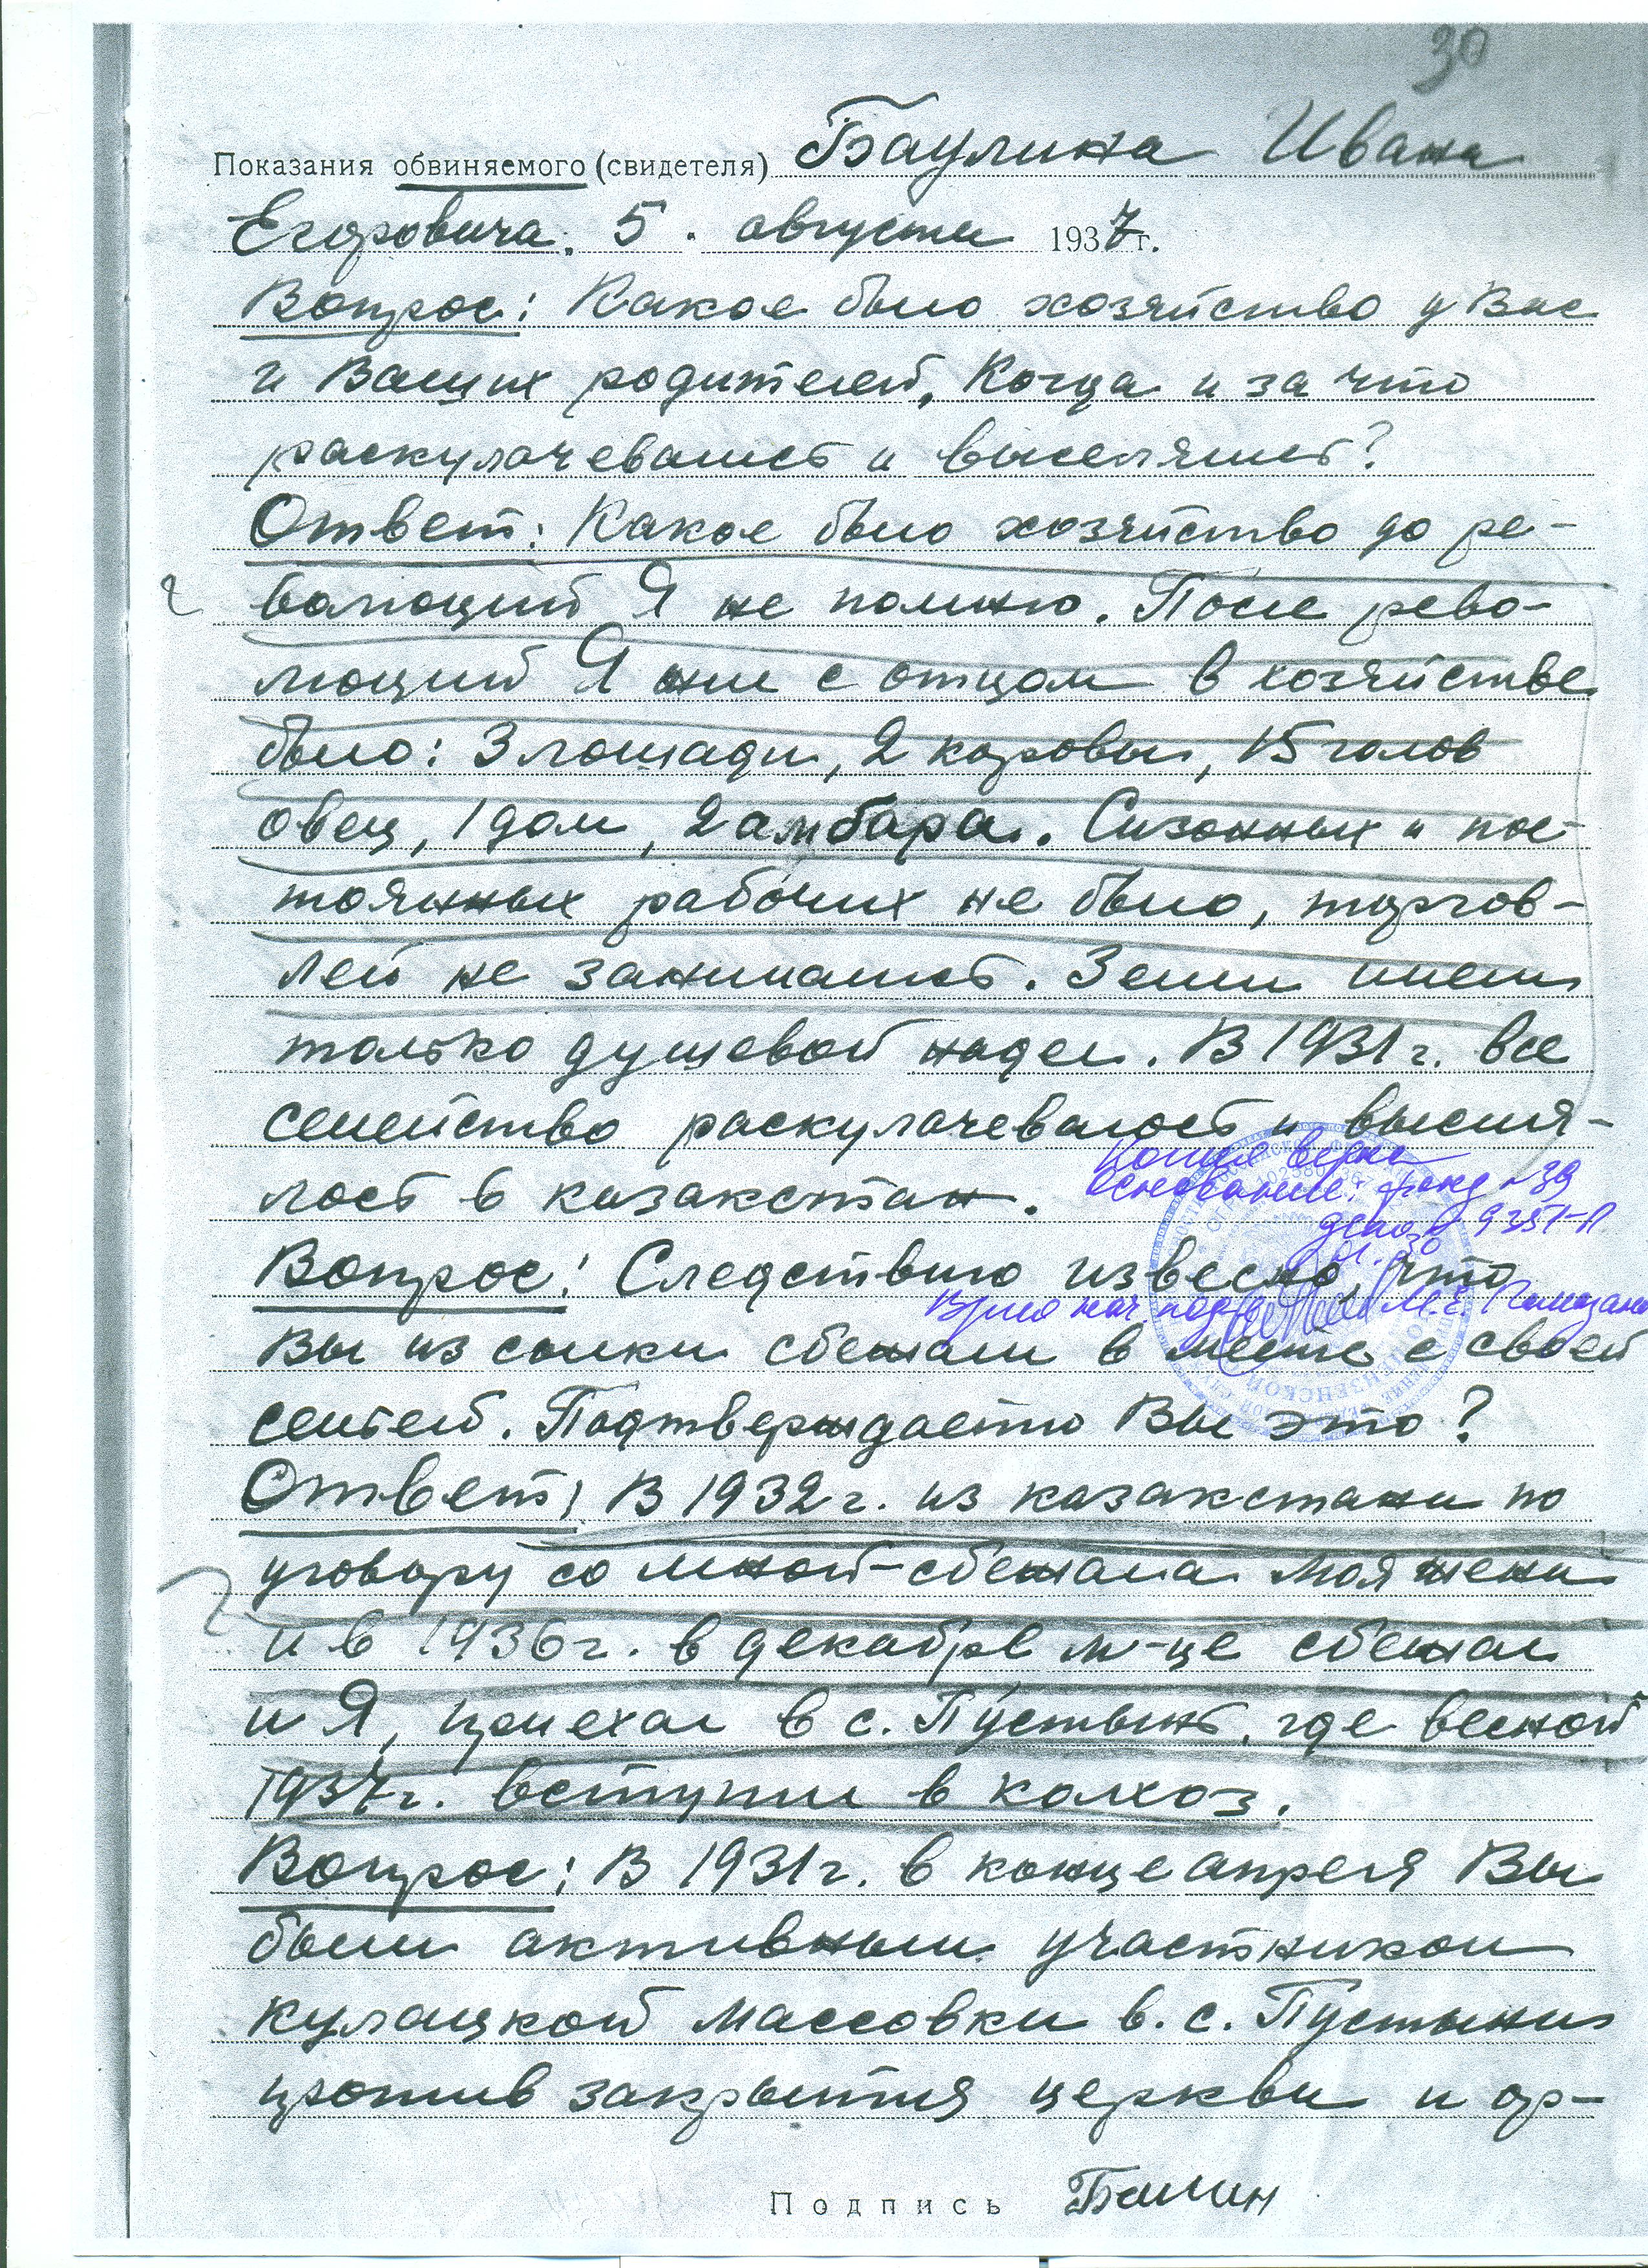 30
Показания обвиняемого (свидетеля) Баулина Ивана
Егоровича. 5. августа 1937 г.
Вопрос: Какое было хозяйство у Вас
и Ваших родителей, Когда и за что
раскулачевались и выселялись?
Ответ: Какое было хозяйство до ре-
валюций Я не помню. После рево-
люций Я или с отцом в хозяйстве
было: 3 лошади, 2 коровы, 15 голов
овец, 1 дом, 2 амбара. Сизонных и пос-
тоянных рабочих не было, торгов-
лей не занимались. Земли имели
только душевой надел. В 1931 г. все
семейство раскулачевалось и высыля-
лось в казакстан.
Копия верна
Основание: фонд №39
дело № 9351-П
л. 30
Вопрос: Следствию извесно, что
Врио нач. подр.
Вы из сылки сбежали в месте с своей
семьей. Подтверждаете Вы это?
Ответ: В 1932 г. из казакстана по
уговору со мной-сбежала моя жена
и в 1936 г. в декабре м-це сбежал
и Я, приехал в с. Пустынь, где весной
1937 г. вступил в колхоз.
Вопрос: В 1931 г. в конце апреля Вы
были активным участником
кулацкой массовки в. с. Пустыни
против закрытия церкви и ор-
Подпись Баулин